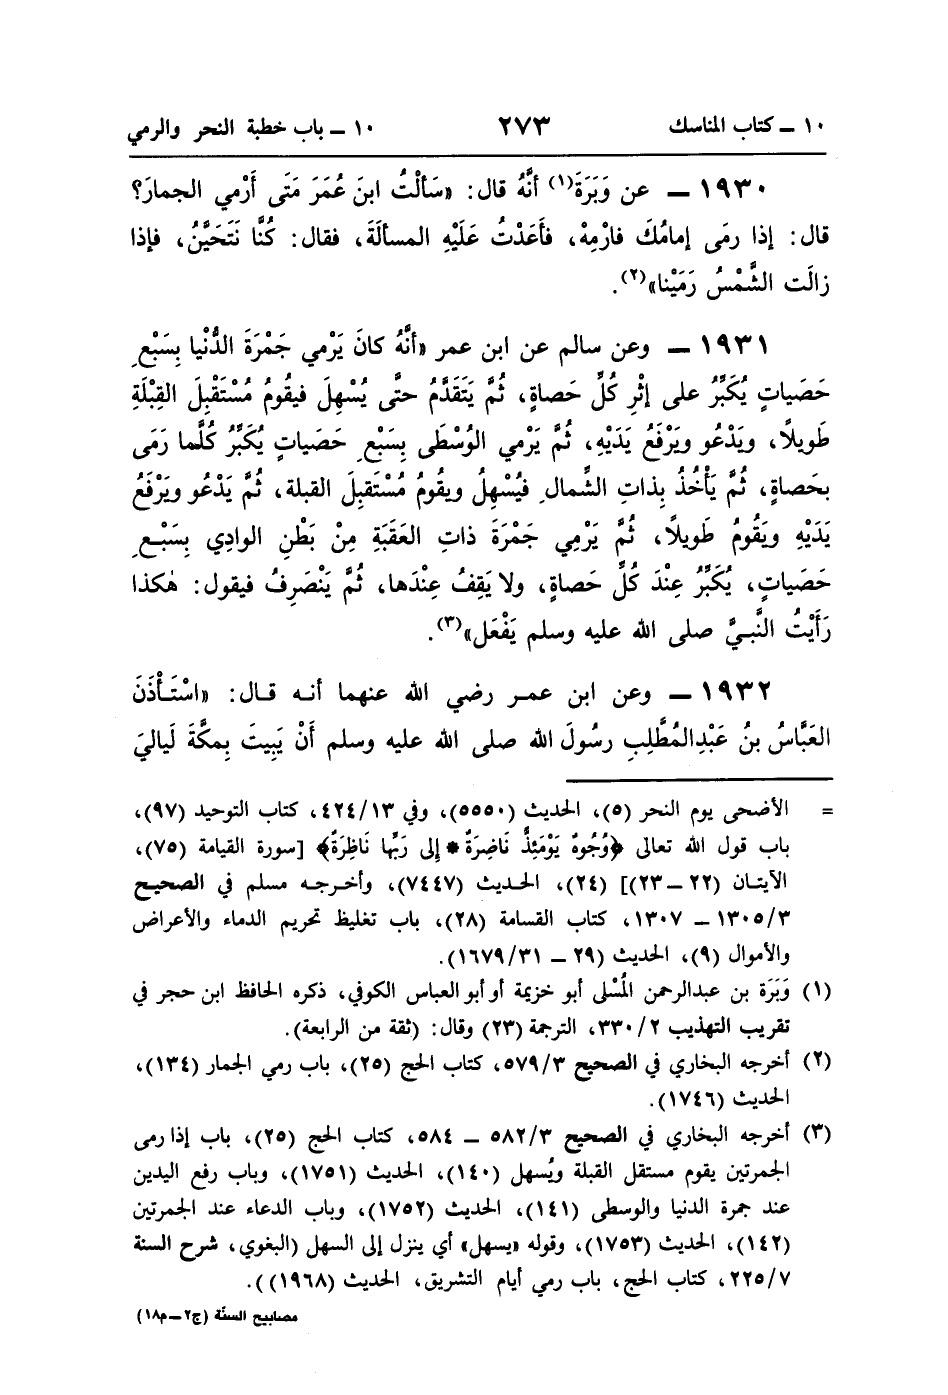 ١٠ ــ كتاب المناسك ٢٧٣ ١٠ ــ باب خطبة النحر والرمي
١٩٣٠ ــ عن وَبَرَةَ(١) أنَّهُ قال: «سَألْتُ ابنَ عُمَرَ مَتَى أَرْمي الجمارَ؟
قال: إذا رمَى إمامُكَ فارْمِهْ، فأعَدْتُ عَلَيْهِ المسألَةَ، فقال: كُنَّا نَتَحَيَّنُ، فإذا
زالَت الشَّمْسُ رَمَيْنا»(٢).
١٩٣١ ــ وعن سالم عن ابن عمر «أنَّهُ كانَ يَرْمي جَمْرَةَ الدُّنْيا بِسَبْعِ
حَصَياتٍ يُكَبِّرُ على إثْرِ كُلِّ حَصاةٍ، ثُمَّ يَتَقَدَّمُ حتَّى يُسْهِلَ فيقُومُ مُسْتَقْبِلَ القِبْلَةِ
طَويلًا، ويَدْعُو ويَرْفَعُ يَدَيْهِ، ثُمَّ يَرْمي الوُسْطَى بِسَبْعِ حَصَياتٍ يُكَبِّرُ كُلَّما رَمَى
بحَصاةٍ، ثُمَّ يَأْخُذُ بِذاتِ الشَّمالِ فيُسْهِلُ ويقُومُ مُسْتَقبِلَ القبلة، ثُمَّ يَدْعُو ويَرْفَعُ
يَدَيْهِ ويَقُومُ طَويلًا، ثُمَّ يَرْمِي جَمْرَةَ ذاتِ العَقَبَةِ مِنْ بَطْنِ الوادِي بِسَبْعِ
حَصَياتٍ، يُكَبِّرُ عِنْدَ كُلِّ حَصاةٍ، ولا يَقِفُ عِنْدَها، ثُمَّ يَنْصَرِفُ فيقول: هٰكذا
رَأَيْتُ النَّبيَّ صلى الله عليه وسلم يَفْعَل»(٣).
١٩٣٢ ــ وعن ابن عمر رضي الله عنهما أنه قال: «اسْتَأْذَنَ
العَبَّاسُ بنُ عَبْدِالمُطَّلِبِ رسُولَ الله صلى الله عليه وسلم أَنْ يَبِيتَ بِمكَّةَ لَياليَ
= الأضحى يوم النحر (٥)، الحديث (٥٥٥٠)، وفي ٤٢٤/١٣، كتاب التوحيد (٩٧)،
باب قول الله تعالى ﴿وُجُوهٌ يَوْمَئِذٌ نَاضِرَةٌ * إلى رَبِّها نَاظِرَةٌ﴾ [سورة القيامة (٧٥)،
الآيتان (٢٢ ــ ٢٣)] (٢٤)، الحديث (٧٤٤٧)، وأخرجه مسلم في الصحيح
١٣٠٥/٣ ــ ١٣٠٧، كتاب القسامة (٢٨)، باب تغليظ تحريم الدماء والأعراض
والأموال (٩)، الحديث (٢٩ ــ ١٦٧٩/٣١).
(١) وَبَرَة بن عبدالرحمن المُسْلى أبو خزيمة أو أبو العباس الكوفي، ذكره الحافظ ابن حجر في
تقريب التهذيب ٣٣٠/٢، الترجمة (٢٣) وقال: (ثقة من الرابعة).
(٢) أخرجه البخاري في الصحيح ٥٧٩/٣، كتاب الحج (٢٥)، باب رمي الجمار (١٣٤)،
الحديث (١٧٤٦).
(٣) أخرجه البخاري في الصحيح ٥٨٢/٣ ــ ٥٨٤، كتاب الحج (٢٥)، باب إذا رمى
الجمرتين يقوم مستقل القبلة ويُسهل (١٤٠)، الحديث (١٧٥١)، وباب رفع اليدين
عند جمرة الدنيا والوسطى (١٤١)، الحديث (١٧٥٢)، وباب الدعاء عند الجمرتين
(١٤٢)، الحديث (١٧٥٣)، وقوله «يسهل» أي ينزل إلى السهل (البغوي، شرح السنة
٢٢٥/٧، كتاب الحج، باب رمي أيام التشريق، الحديث (١٩٦٨)).
مصابيح السنّة (ج٢ــم١٨)